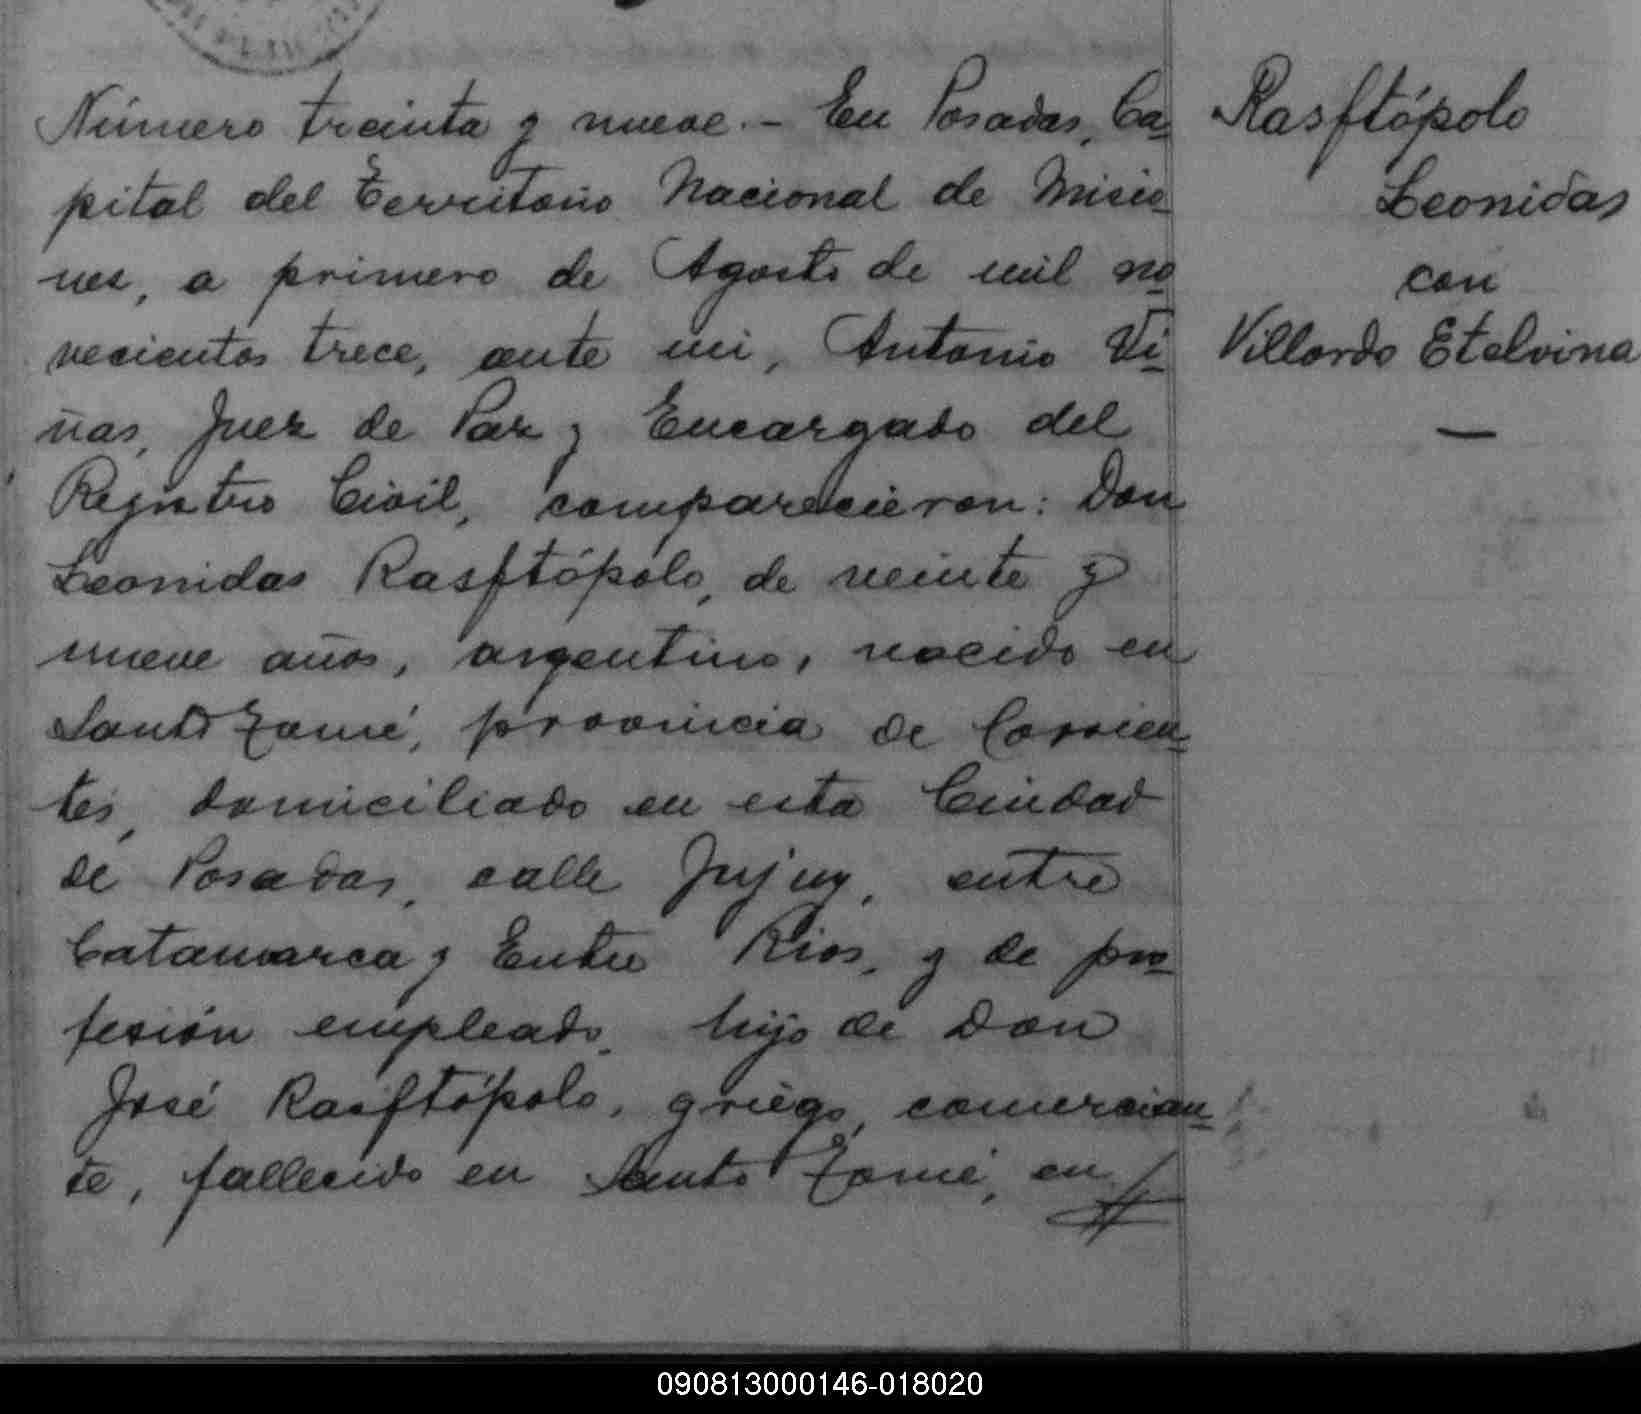 Número treinta y nueve.- En Posadas, Ca-
pital del Territorio Nacional de Misio-
nes, a primero de Agosto de mil no-
vecientos trece, ante mi, Antonio Vi-
ñas, Juez de Paz y Encargado del
Registro Civil, comparecieron: Don
Leonidas Rasftópolo, de veinte y
nueve años, argentino, nacido en
Santo Tomé, provincia de Corrien-
tes, domiciliado en esta Ciudad
de Posadas, calle Jujuy, entre
Catamarca y Entre Rios, y de pro-
fesión empleado, hijo de Don
José Rasftópolo, griego, comercian-
te, fallecido en Santo Tomé, en
Rasftópolo
Leonidas
con
Villordo Etelvina
—
090813000146-018020